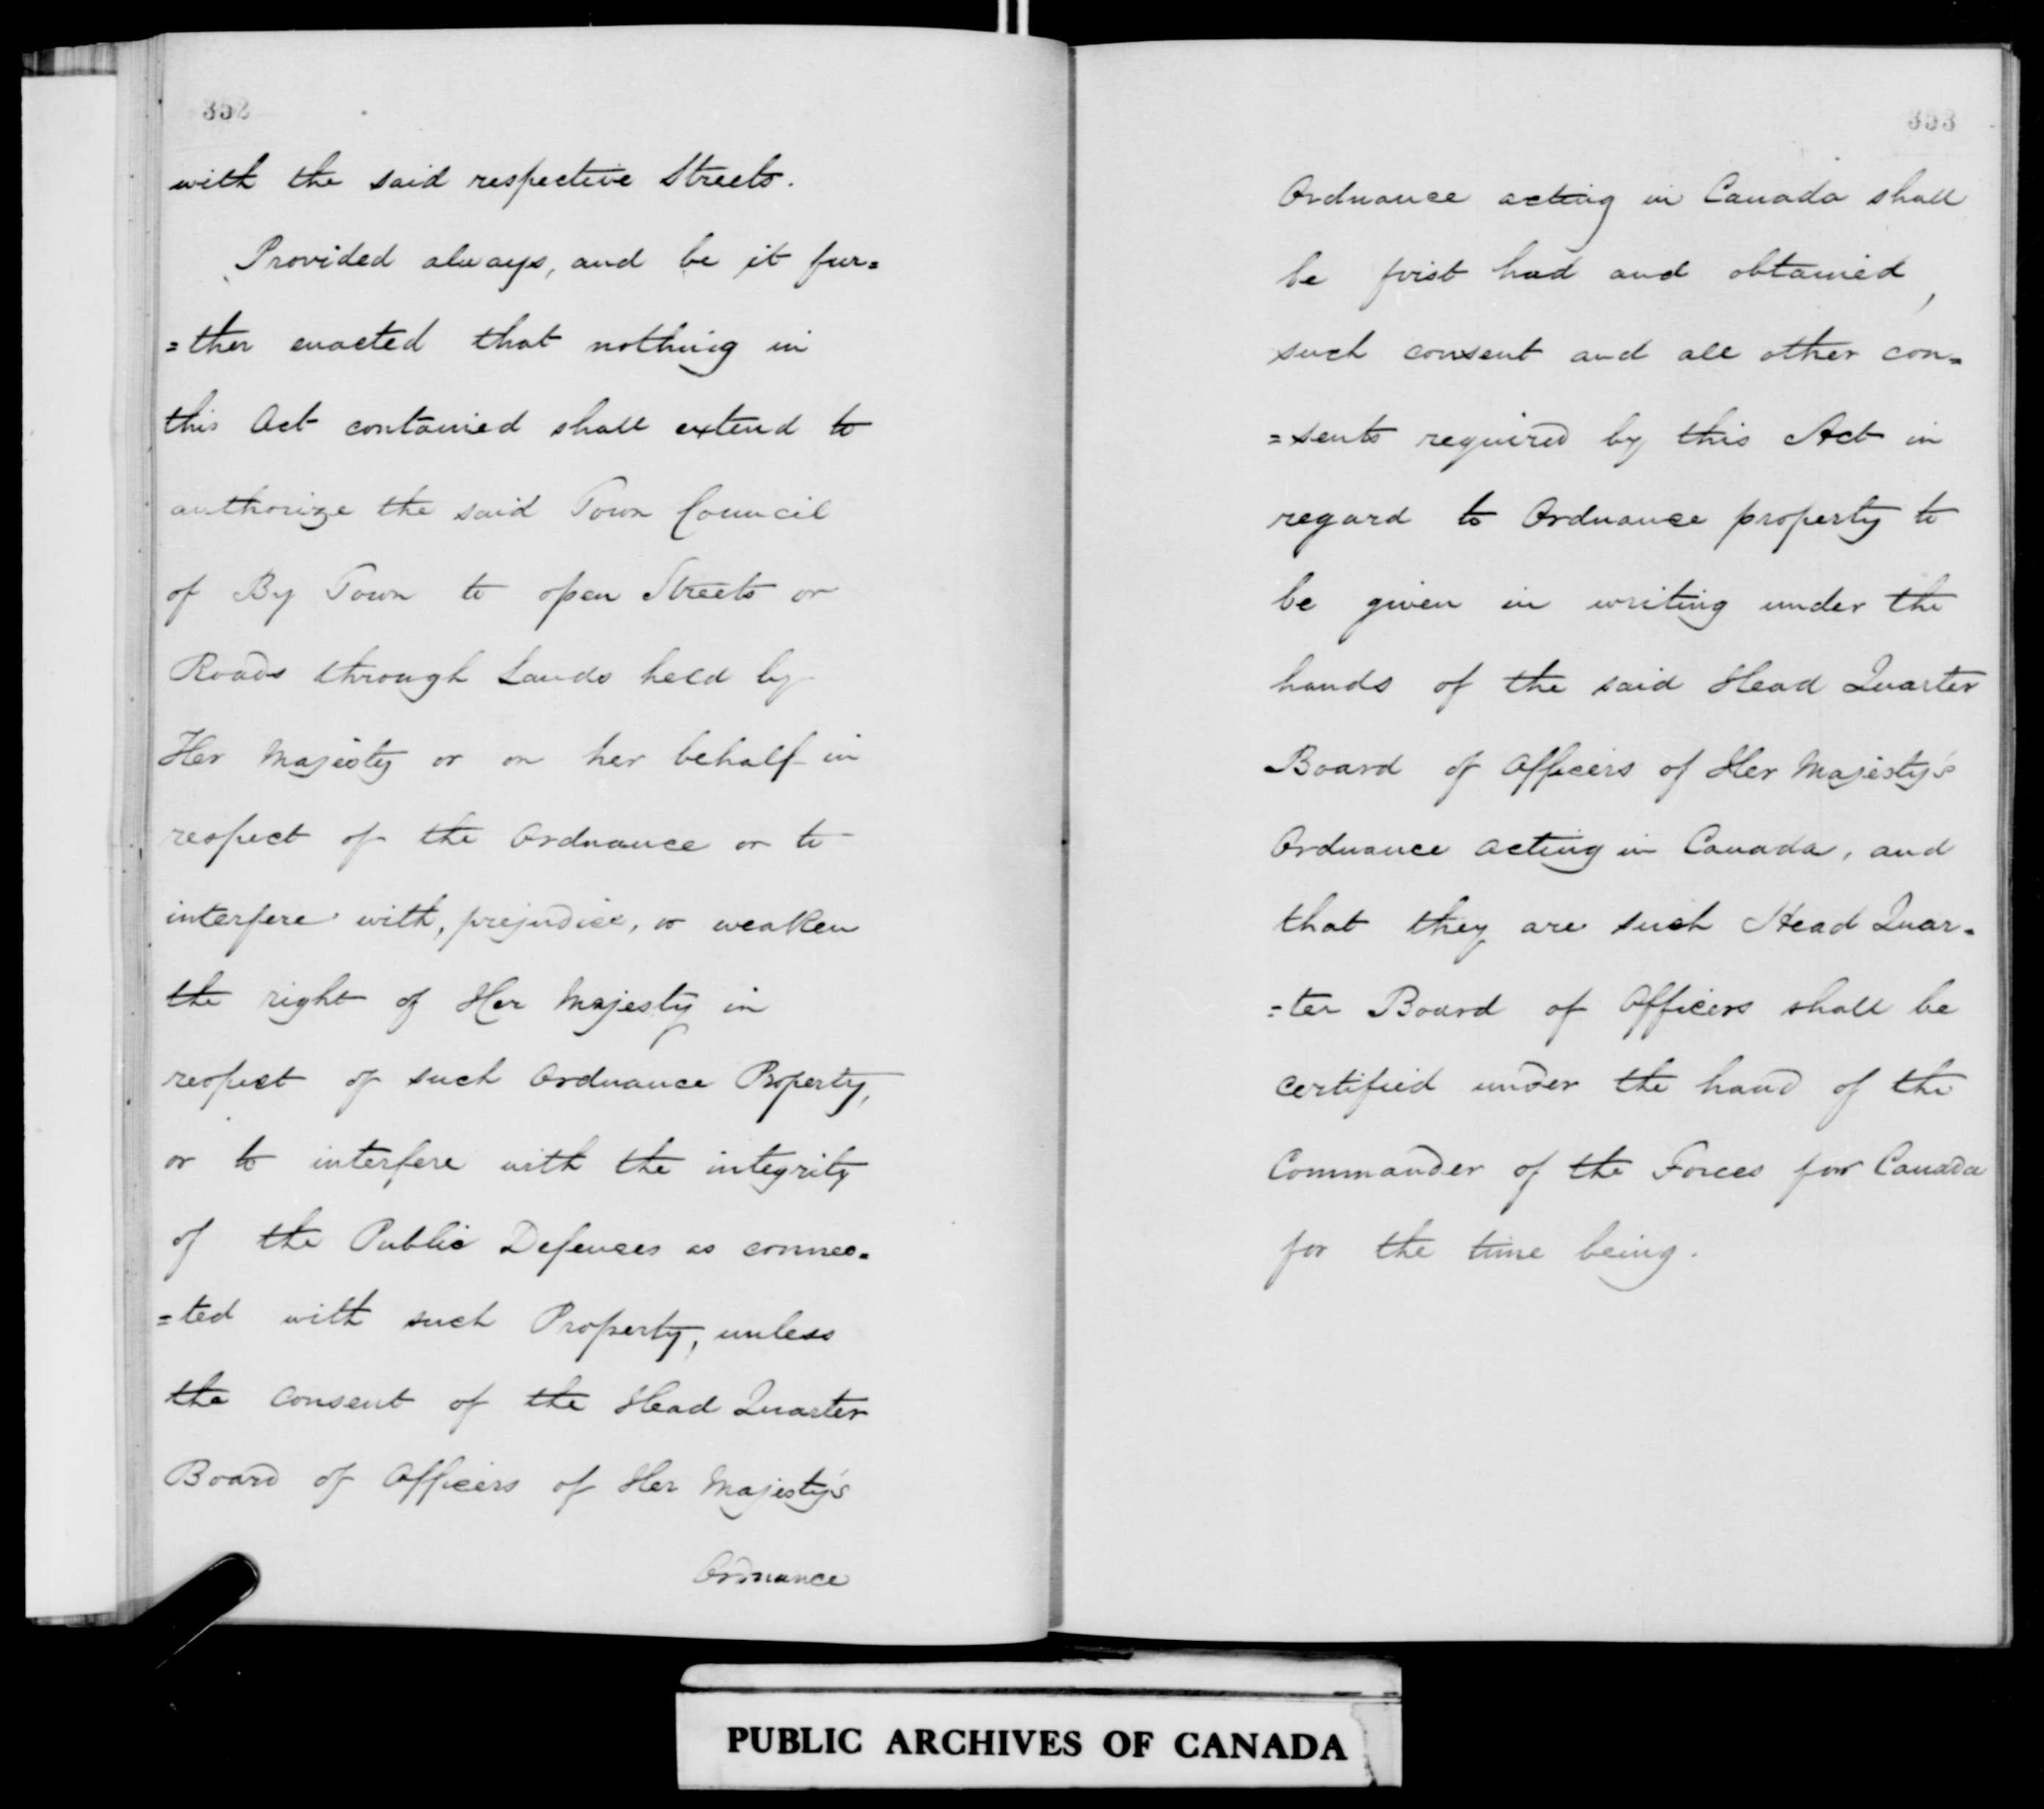 352
with the said respective Streets.
Provided always, and be it fur=
=ther enacted that nothing in
this Act contained shall extend to
authorize the said Town Council
of By Town to open Streets or
Roads through Lands held by
Her Majesty or on her behalf in
respect of the Ordnance or to
interfere with, prejudice, or weaken
the right of Her Majesty in
respect of such Ordnance Property,
or to interfere with the integrity
of the Public Defences as connec=
=ted with such Property, unless
the consent of the Head Quarter
Board of Officers of Her Majesty's
Ordnance
353
Ordnance acting in Canada shall
be first had and obtained,
such consent and all other con=
=sents required by this Act in
regard to Ordnance property to
be given in writing under the
hands of the said Head Quarter
Board of Officers of Her Majesty's
Ordnance acting in Canada, and
that they are such Head Quar=
=ter Board of Officers shall be
certified under the hand of the
Commander of the Forces for Canada
for the time being.
PUBLIC ARCHIVES OF CANADA